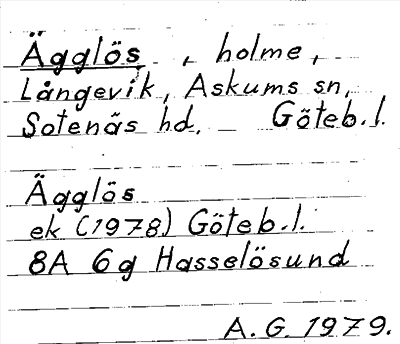 Ägglös, holme,
Långevik, Askums sn,
Sotenäs hd. Göteb.l.
Ägglös
ek (1978) Göteb.l.
8A 6g Hasselösund
A.G. 1979.